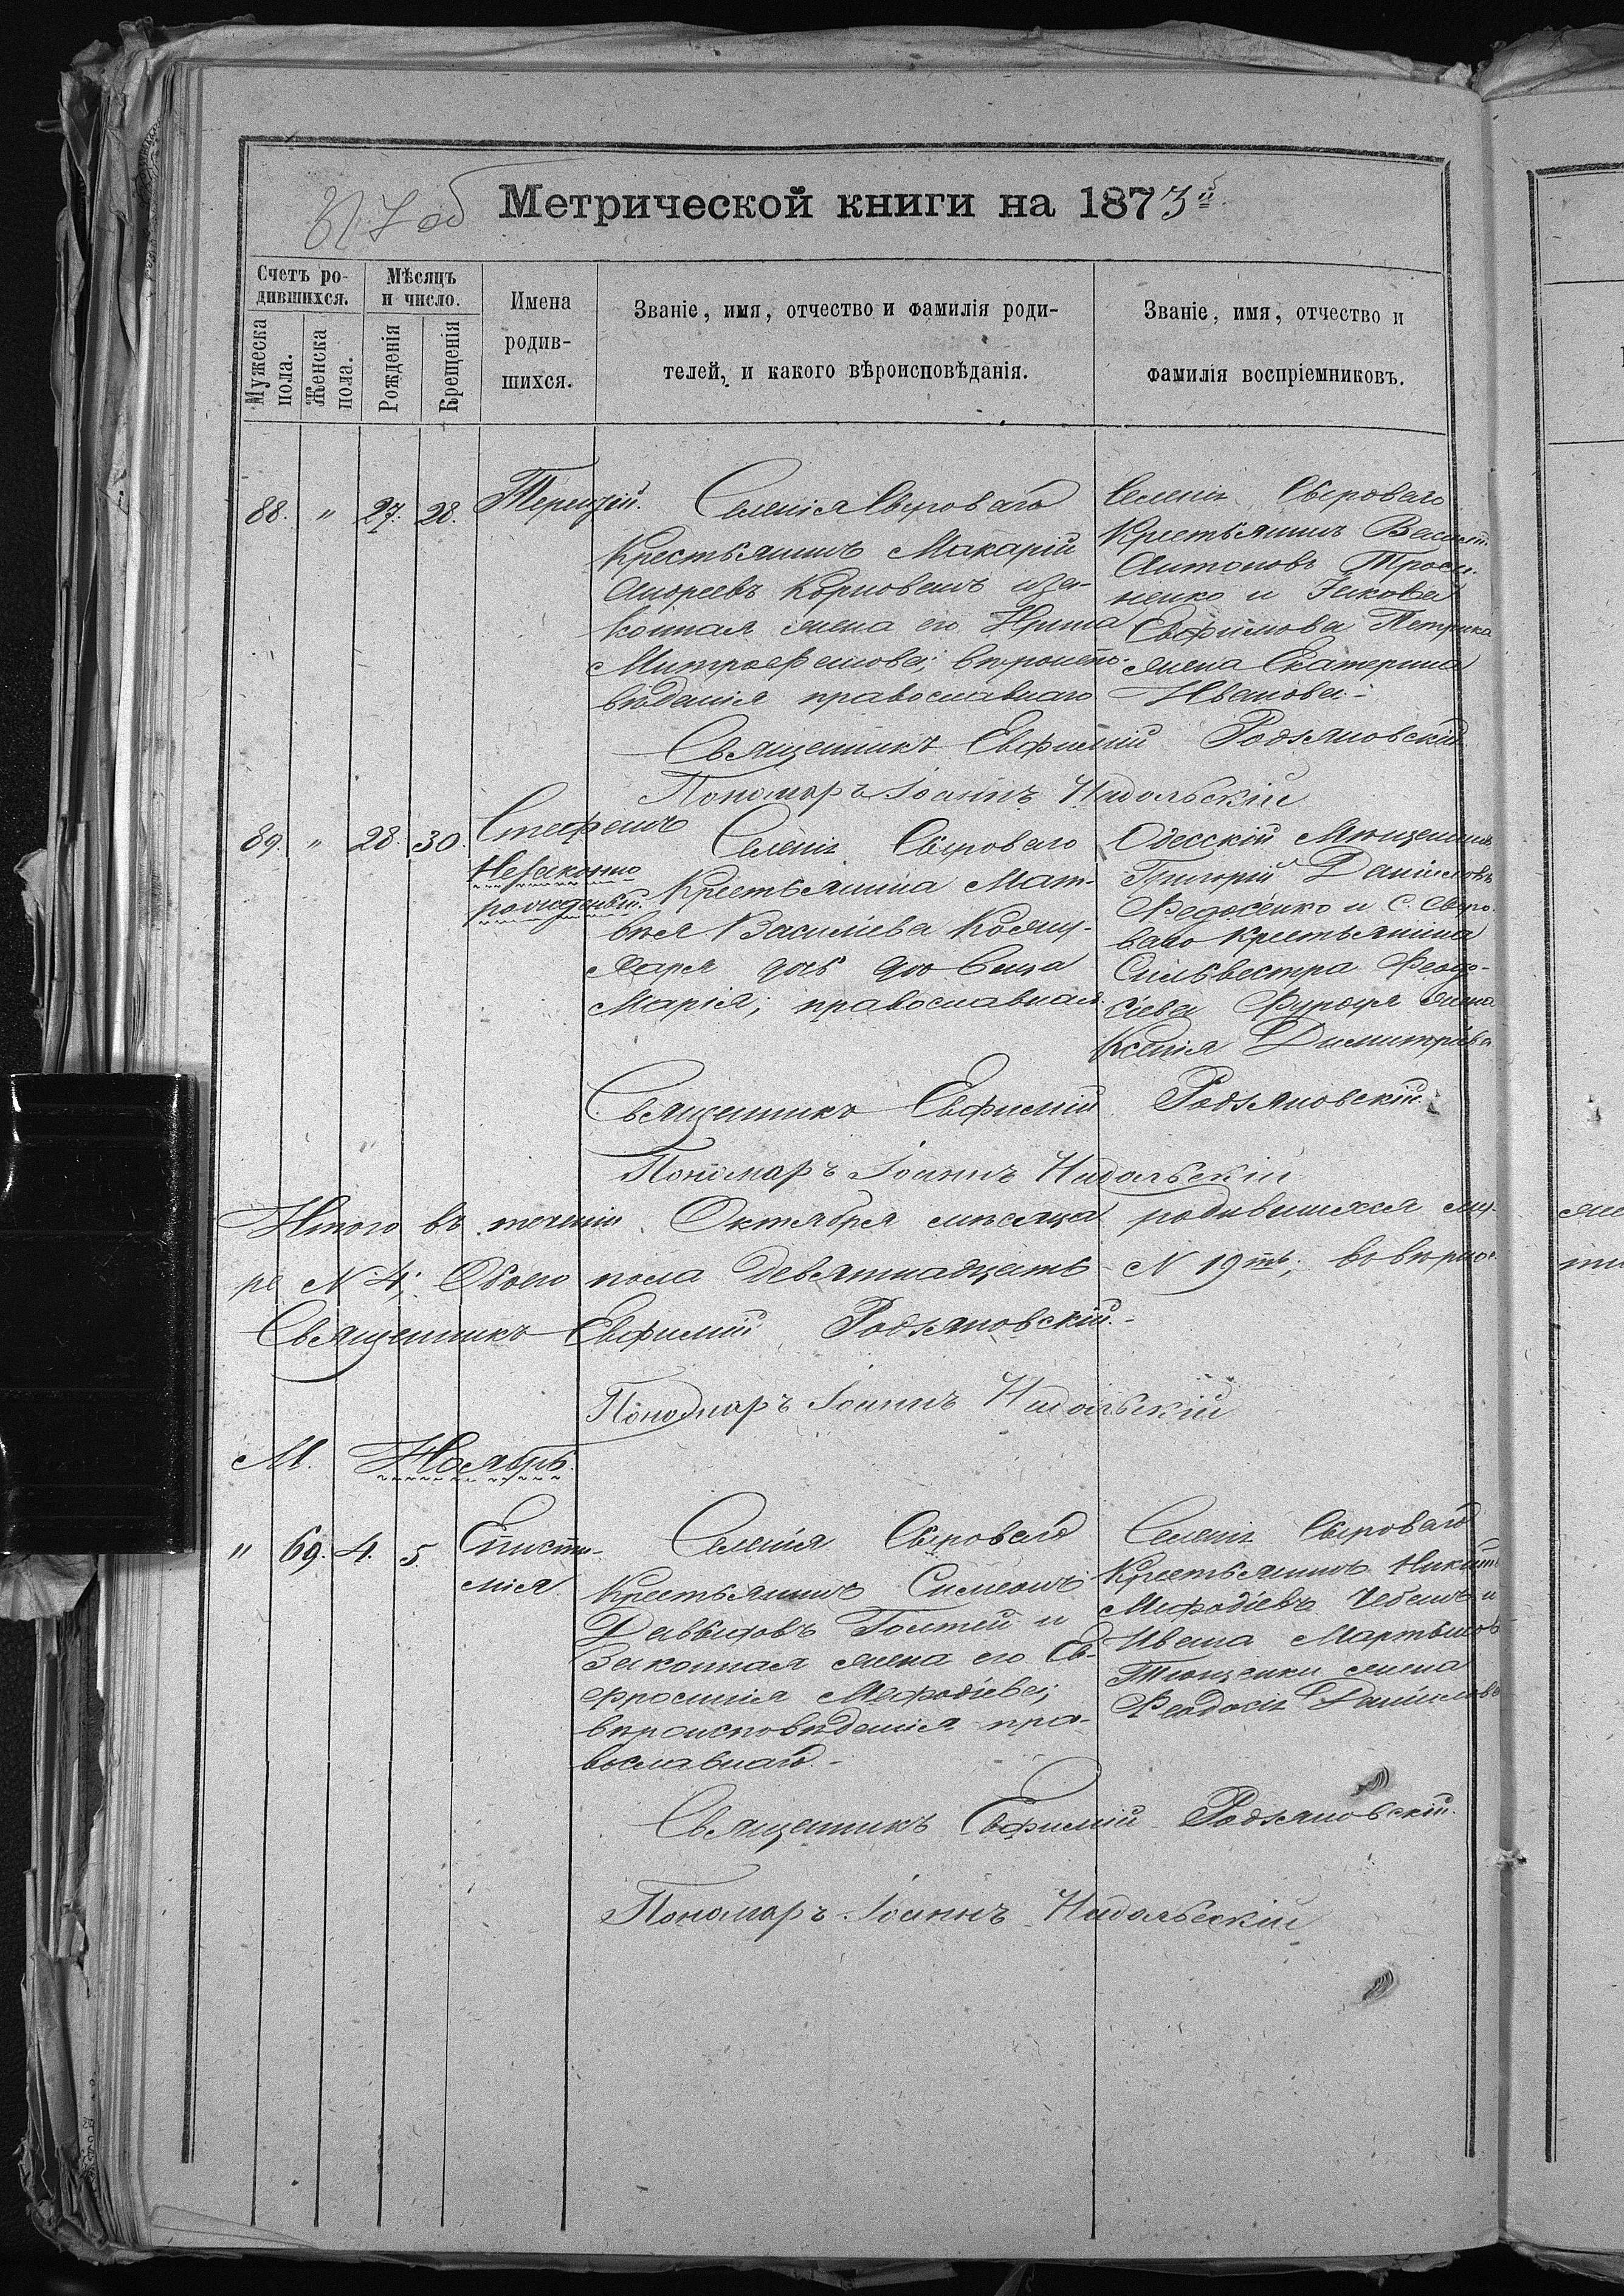 Метрической книги на 1873й.
Счетъ ро-
дившихся.
Мужеска
пола.
Женска
пола.
Мѣсяцъ
и число.
Рожденія
Крещенія
Имена
родив-
шихся.
Званіе, имя, отчество и фамилія роди-
телей, и какого вѣроисповѣданія.
Званіе, имя, отчество и
фамилія воспріемниковъ.
88. " 27. 28.
Терентій.
Селенія Сыроваго
Крестьянинъ Макарій
Андреевъ иза-
конная жена его Ирина
Митрофанова; вѣроиспо-
вѣданія православнаго
Селенія Сыроваго
Крестьянинъ Василій
Антоновъ
ненко и Іакова
Евфимова Петрика
жена Екатерина
Иванова.-
Священникъ Евфимій Родзяновскій
Пономарь Іоаннъ Надольскій
89. " 28. 30.
Стефанъ
Незаконно
рожденный.
Селенія Сыроваго
Крестьянина Мат-
вѣя Василіева
дочь дѣвица
Марія; православная.
Одесскій Мѣщанинъ
Григорій Даниловъ
Федосенко и С. Сыро-
ваго крестьянина
Сильвестра Феодо-
сіева жена
Ксенія Димитріева
Священникъ Евфимій Родзяновскій.
Пономарь Іоаннъ Надольскій
Итого въ теченіи Октября мѣсяца родившихся му-
ре N 4; Обоего пола девятнадцать N 19ть;
Священникъ Евфимій Родзяновскій.-
Пономарь Іоаннъ Надольскій
М. Ноябрь.
" 69. 4. 5.
Еписти-
мія.
Селенія Сыроваго
Крестьянинъ Симеонъ
Давыдовъ и
Законная жена его Ев-
фросинія Мефодіева;
вѣроисповѣданія пра-
вославнаго.-
Селенія Сыроваго
Крестьянинъ Никита
Мефодіевъ Чебанъ и
Ивана Мартынова
жена
Феодосія Данилова
Священникъ Евфимій Родзяновскій.
Пономарь Іоаннъ Надольскій